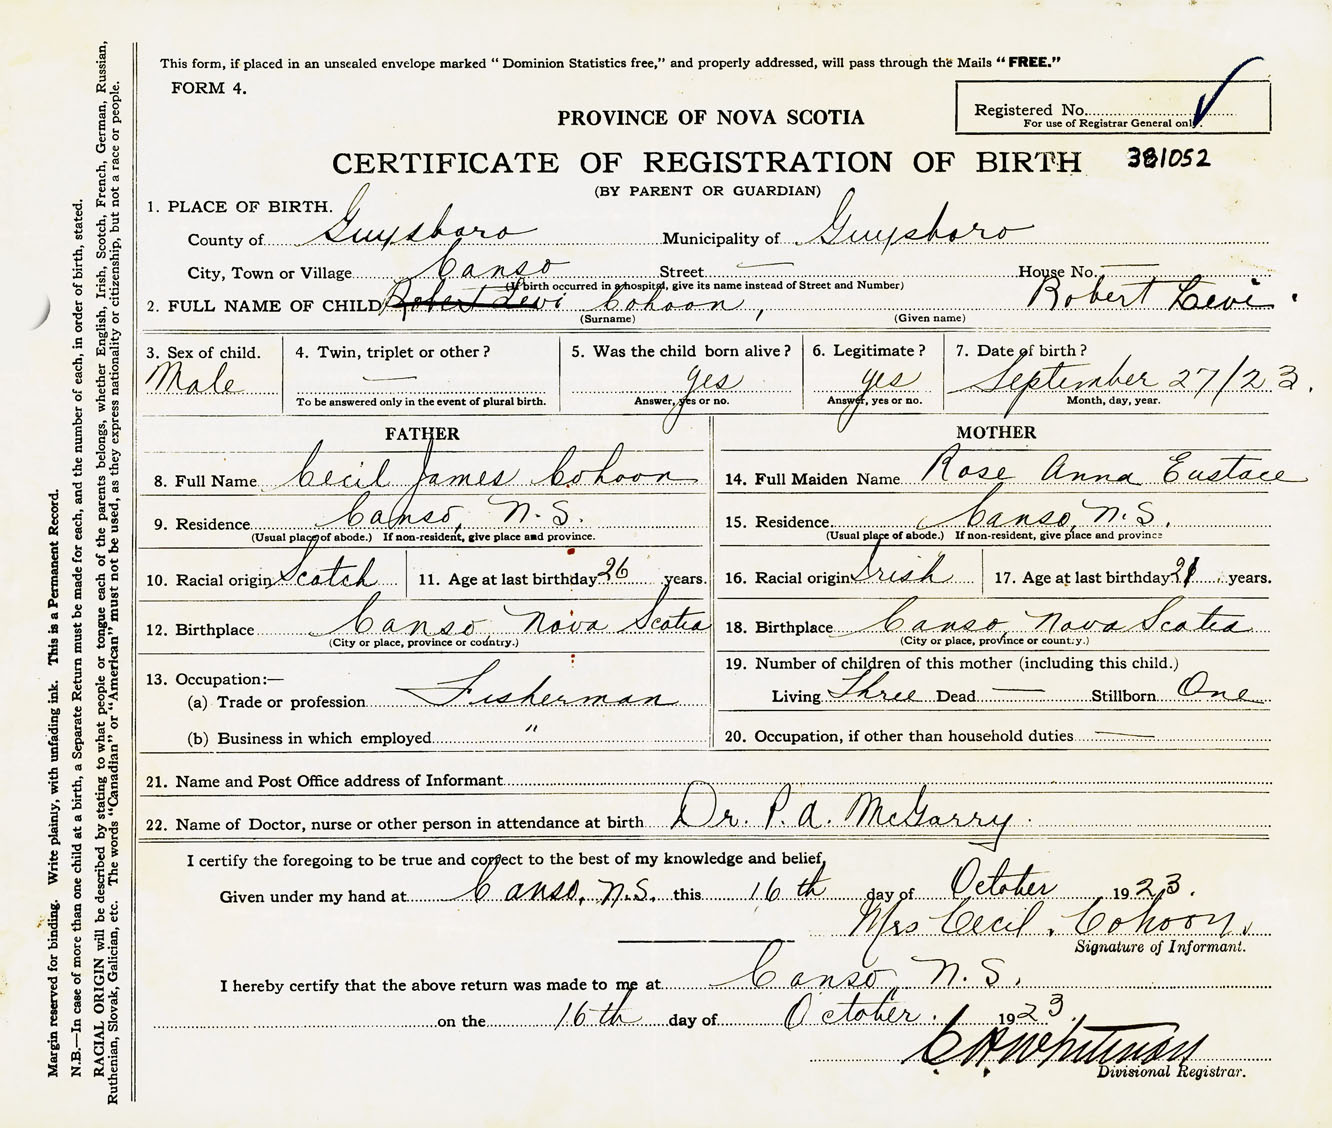 This form, if placed in an unsealed envelope marked “ Dominion Statistics free,” and properly addressed, will pass through the Mails “ FREE.”
FORM 4.
Registered No.
For use of Registrar General only.
PROVINCE OF NOVA SCOTIA
CERTIFICATE OF REGISTRATION OF BIRTH 381052
(BY PARENT OR GUARDIAN)
1. PLACE OF BIRTH.
County of Guysboro Municipality of Guysboro
City, Town or Village Canso Street — House No. —
(If birth occurred in a hospital, give its name instead of Street and Number)
2. FULL NAME OF CHILD Robert Levi Cohoon, Robert Levi.
(Surname) (Given name)
3. Sex of child. 4. Twin, triplet or other ? 5. Was the child born alive ? 6. Legitimate ? 7. Date of birth ?
Male — yes yes September 27/23.
To be answered only in the event of plural birth. Answer, yes or no. Answer, yes or no. Month, day, year.
FATHER
8. Full Name Cecil James Cohoon
9. Residence Canso, N.S.
(Usual place of abode.) If non-resident, give place and province.
10. Racial origin Scotch 11. Age at last birthday 26 years.
12. Birthplace Canso Nova Scotia
(City or place, province or country.)
13. Occupation:—
(a) Trade or profession Fisherman
(b) Business in which employed "
MOTHER
14. Full Maiden Name Rose Anna Eustace
15. Residence Canso, N.S.
(Usual place of abode.) If non-resident, give place and province
16. Racial origin Irish 17. Age at last birthday 21 years.
18. Birthplace Canso, Nova Scotia
(City or place, province or country.)
19. Number of children of this mother (including this child.)
Living Three Dead — Stillborn One
20. Occupation, if other than household duties —
21. Name and Post Office address of Informant
22. Name of Doctor, nurse or other person in attendance at birth Dr. P. A. McGarry.
I certify the foregoing to be true and correct to the best of my knowledge and belief,
Given under my hand at Canso, N.S. this 16th day of October 1923.
Mrs Cecil. Cohoon.
Signature of Informant.
I hereby certify that the above return was made to me at Canso, N.S.
on the 16th day of October. 1923.
C H Whitman
Divisional Registrar.
Margin reserved for binding. Write plainly, with unfading ink. This is a Permanent Record.
N.B.—In case of more than one child at a birth, a Separate Return must be made for each, and the number of each, in order of birth, stated.
RACIAL ORIGIN will be described by stating to what people or tongue each of the parents belongs, whether English, Irish, Scotch, French, German, Russian,
Ruthenian, Slovak, Galician, etc. The words “Canadian” or “American” must not be used, as they express nationality or citizenship, but not a race or people.